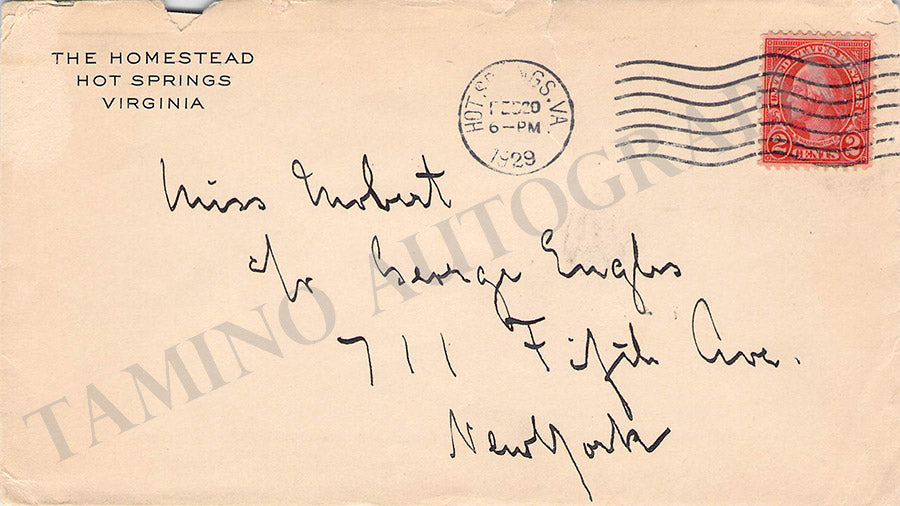 THE HOMESTEAD
HOT SPRINGS
VIRGINIA
HOT SPRINGS, VA.
FEB 20
6-PM
1929
UNITED STATES POSTAGE
2 CENTS 2
Miss Mobert
c/o George Engles
711 Fifth Ave.
New York
TAMINO AUTOGRAPHS